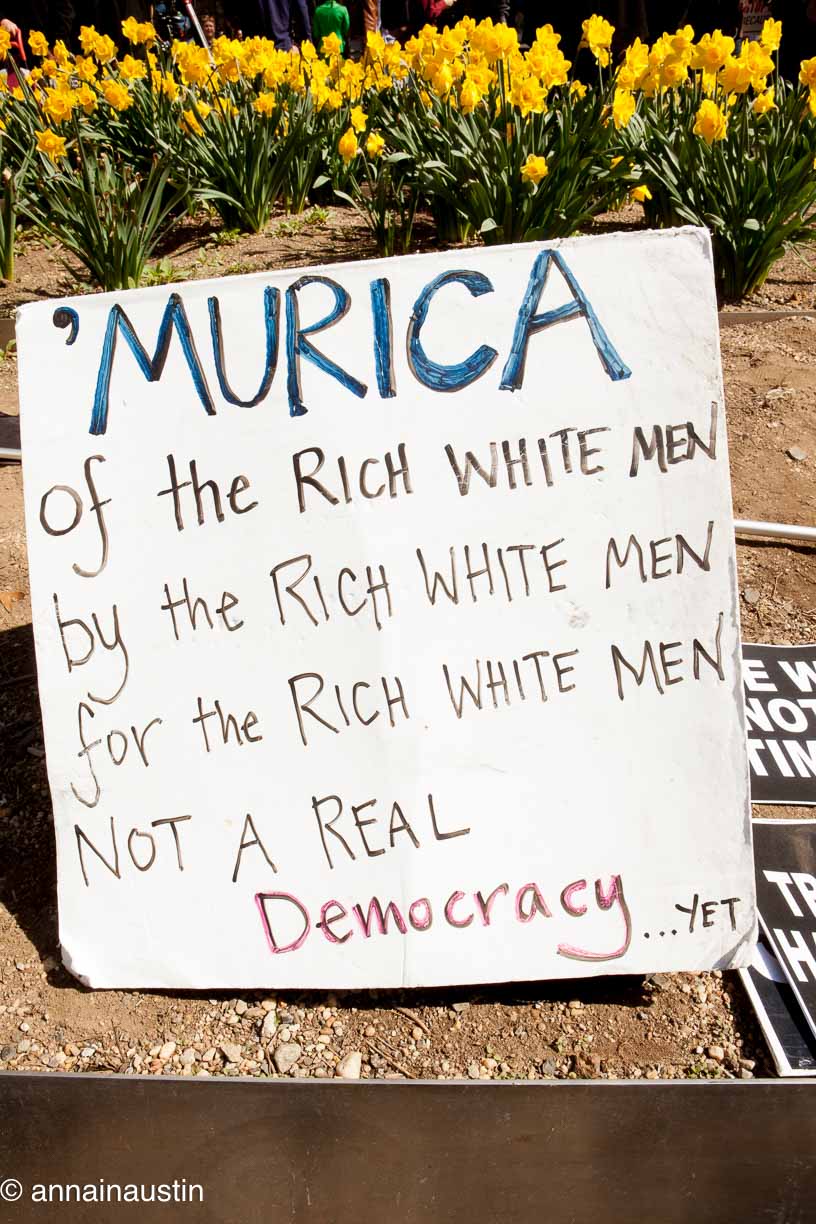 'MURICA
of the RICH WHITE MEN
by the RICH WHITE MEN
for the RICH WHITE MEN
NOT A REAL
Democracy ...YET
E W
NOT
TIM
TR
H
© annainaustin